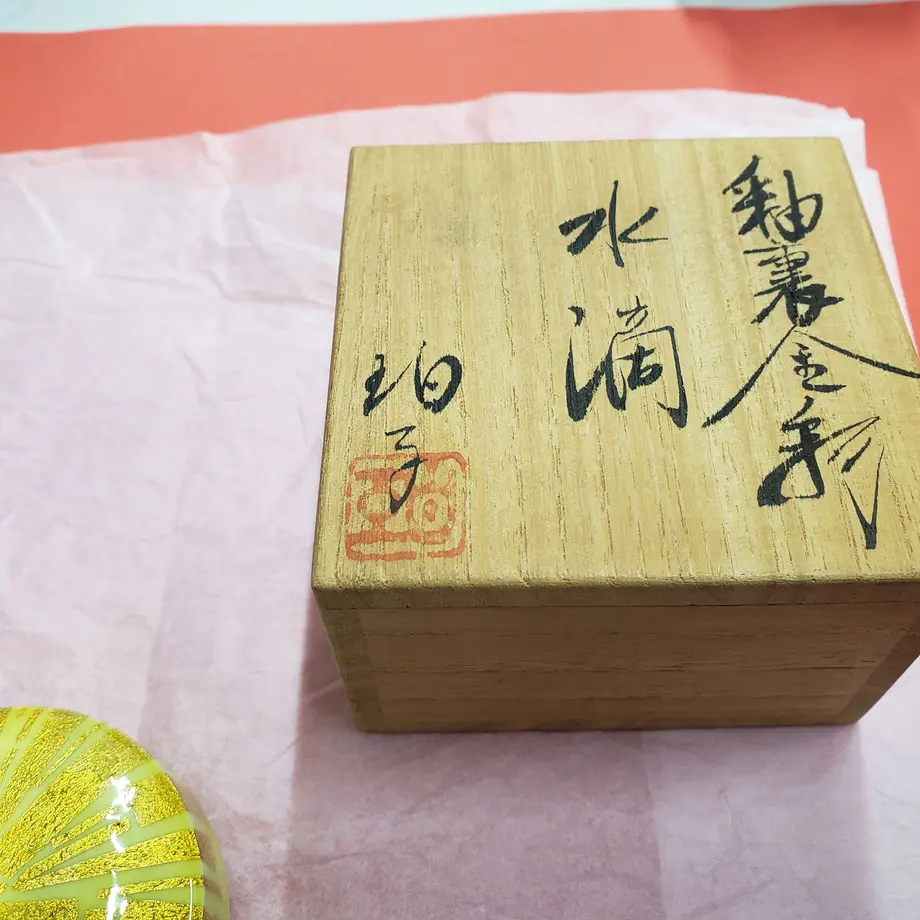 釉裏金彩
水滴
珀子